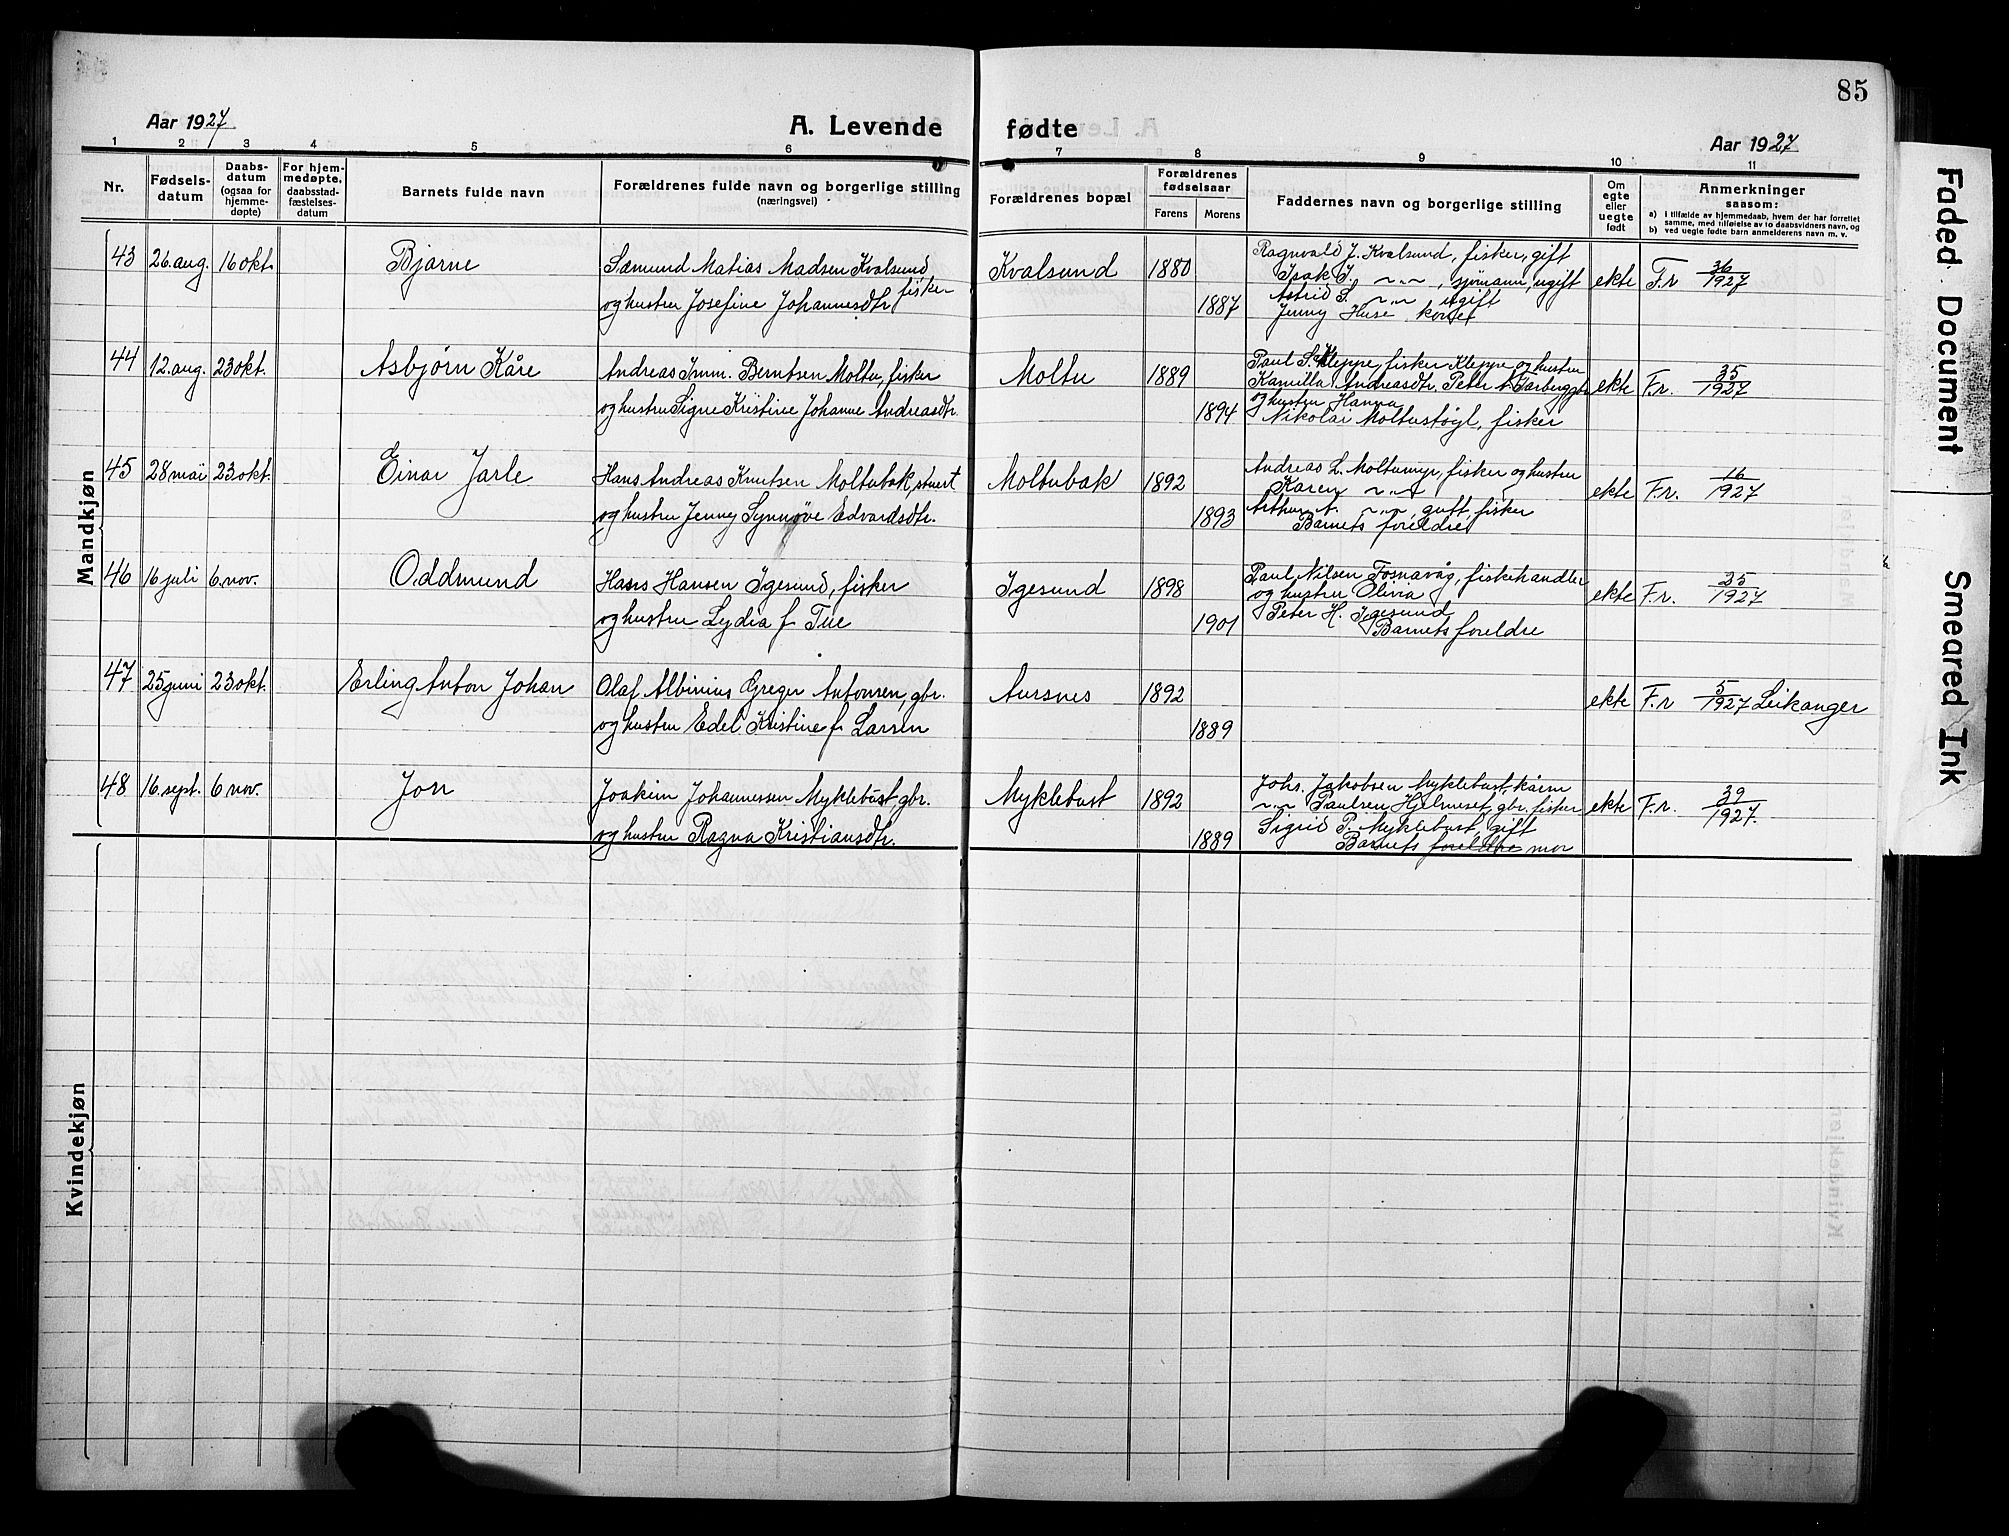 85
Aar 1927
A. Levende fødte
Aar 1927
1 2 3 4 5 6 7 8 9 10 11
Nr.
Fødsels-
datum
Daabs-
datum
(ogsaa for
hjemme-
døpte)
For hjem-
medøpte.
daabsstad-
fæstelses-
datum
Barnets fulde navn
Forældrenes fulde navn og borgerlige stilling
(næringsvei)
Forældrenes bopæl
Forældrenes
fødselsaar
Farens Morens
Faddernes navn og borgerlige stilling
Om
egte
eller
uegte
født
Anmerkninger
saasom:
a) I tilfælde av hjemmedaab, hvem der har forrettet
samme, med tilføielse av to daabsvidners navn, og
b) ved uegte fødte barn anmelderens navn m. v.
Mandkjøn
43 26 aug. 16 okt. Bjarne
Sæmund Matias Madsen Kvalsund,
fisker
og hustru Josefine Johannesdtr.
Kvalsund 1880
1887
Ragnvald J. Kvalsund, fisker, gift
Isak J. ~"~, sjømann, ugift
Astrid S. ~"~ ugift
Jenny Huse kone
ekte F.r 36/1927
44 12. aug. 23 okt. Asbjørn Kåre
Andreas Imm. Berntsen Moltu, fisker
og hustru Signe Kristine Johanne Andreasdtr.
Moltu 1889
1894
Paul S. Kleppe, fisker Kleppe og hustru
Kamilla Andreasdtr, Peter
og hustru Hanna
Nikolai Moltustøyl, fisker
ekte F.r. 35/1927
45 28 mai 23 okt. Einar Jarle
Hans Andreas Knutsen Moltubak, stuert
og hustru Jenny Synnøve Edvardsdtr.
Moltubak 1892
1893
Andreas L. Moltumyr, fisker og hustru
Karen ~"~
Arthur A. ~"~, gift, fisker
Barnets foreldre
ekte F.r. 16/1927
46 16 juli 6. nov. Oddmund
Hans Hansen Igesund, fisker
og hustru Lydia f. Tue
Igesund 1898
1901
Paul Nilsen Fosnavåg, fiskehandler
og hustru Olivia
Peter H. Igesund
Barnets foreldre
ekte F.r. 25/1927
47 25 juni 23 okt. Erling Anton Johan
Olaf Albinius Greger Antonsen, gbr.
og hustru Edel Kristine f. Larsen
Aursnes 1892
1889
ekte F.r 5/1927 Leikanger
48 16. sept. 6 nov. Jon
Joakim Johannessen Myklebust, gbr.
og hustru Ragna Kristiansdtr.
Myklebust 1892
1889
Johs. Jakobsen Myklebust, kårm
~"~ Paulsen Hjelmeset, gbr. fisker
Sigrid P. Myklebust, gift
Barnets foreldre mor
ekte F.r. 39/1927.
Kvindekjøn
Faded Document
Smeared Ink